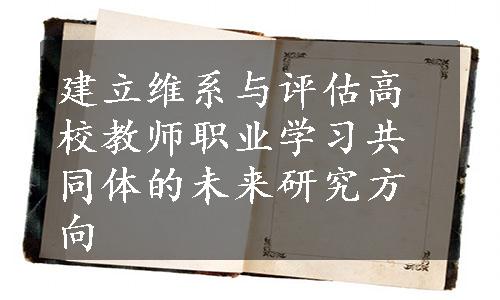 建立维系与评估高
校教师职业学习共
同体的未来研究方
向